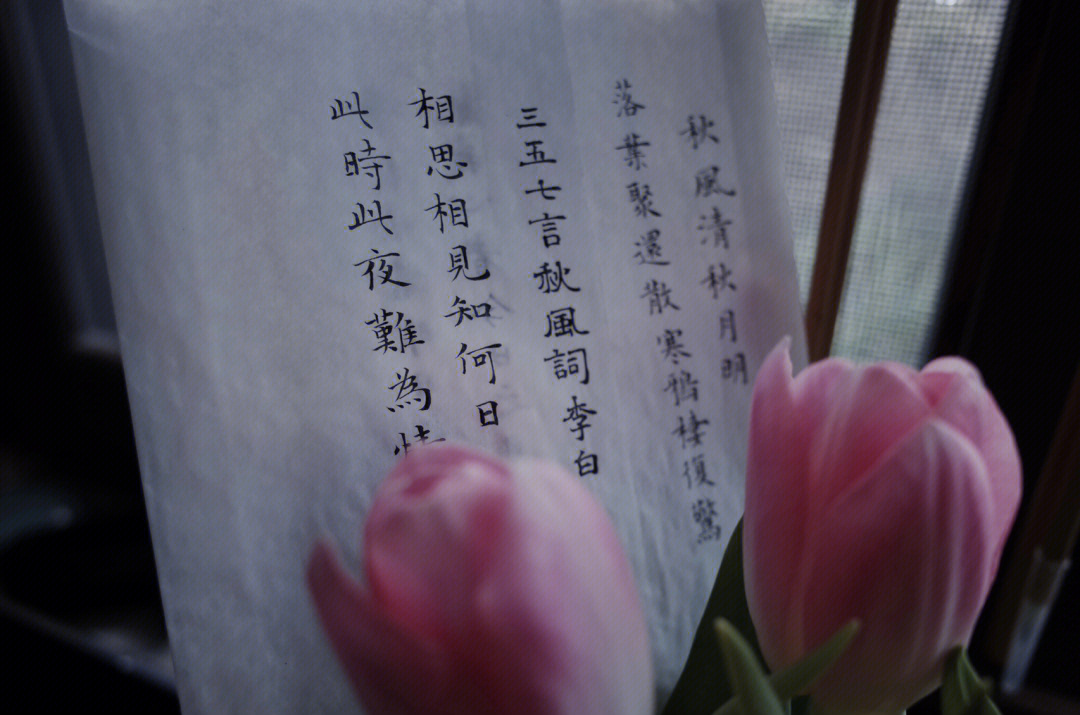 秋風清秋月明
落葉聚還散寒鴉棲復驚
三五七言秋風詞 李白
相思相見知何日
此時此夜難為